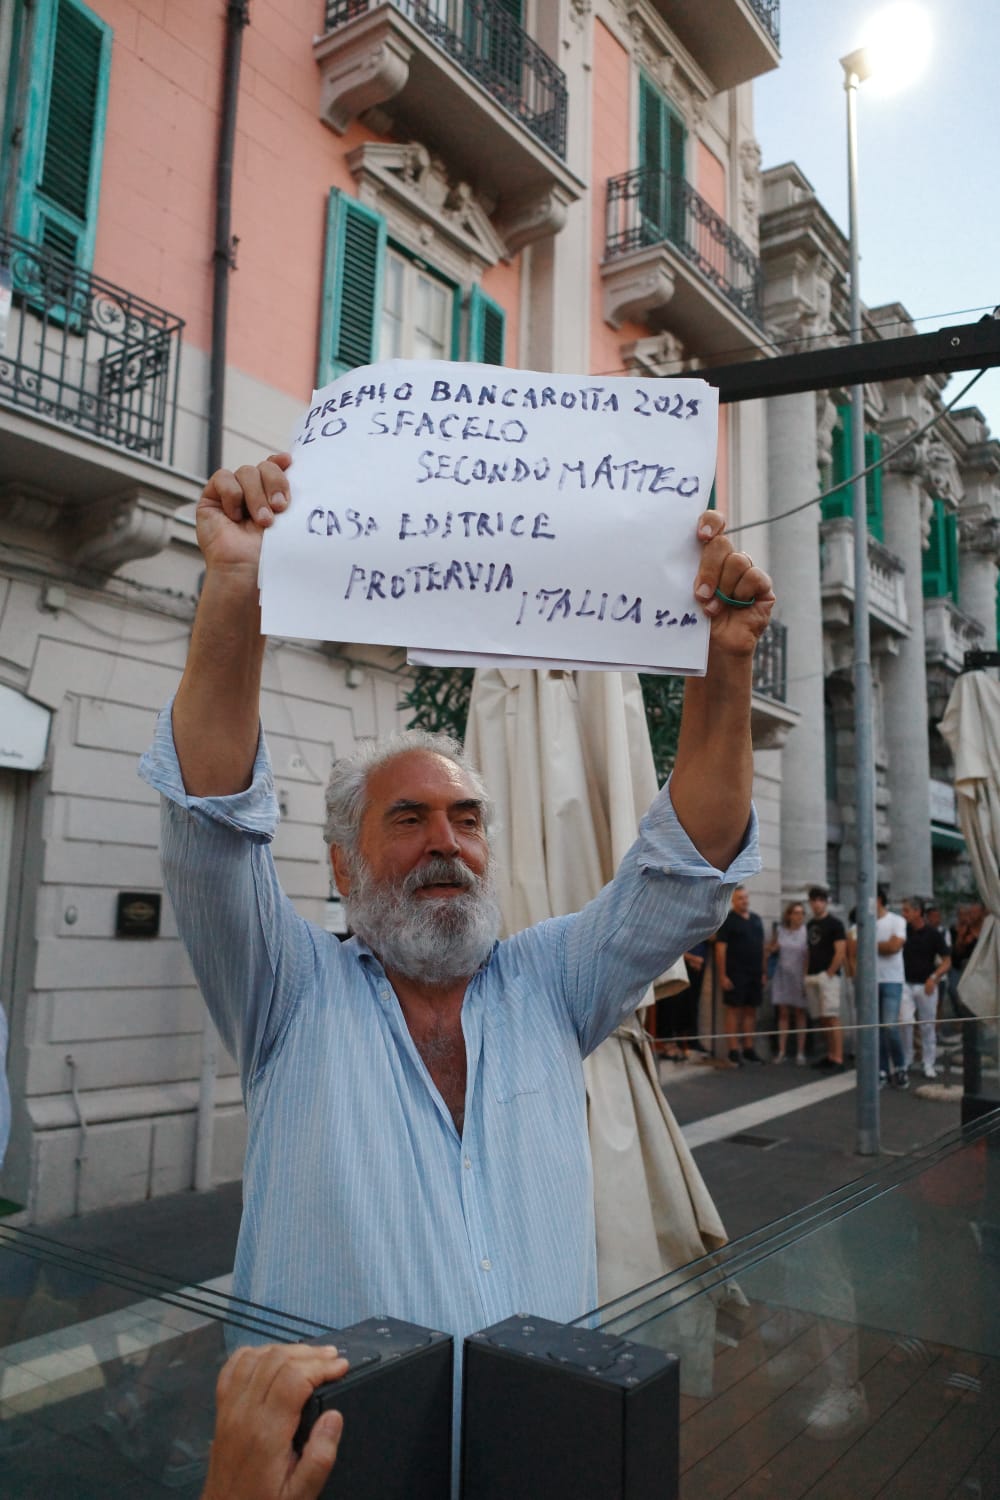 PREMIO BANCAROTTA 2025
LO SFACELO
SECONDO MATTEO
CASA EDITRICE
PROTERVIA
ITALICA